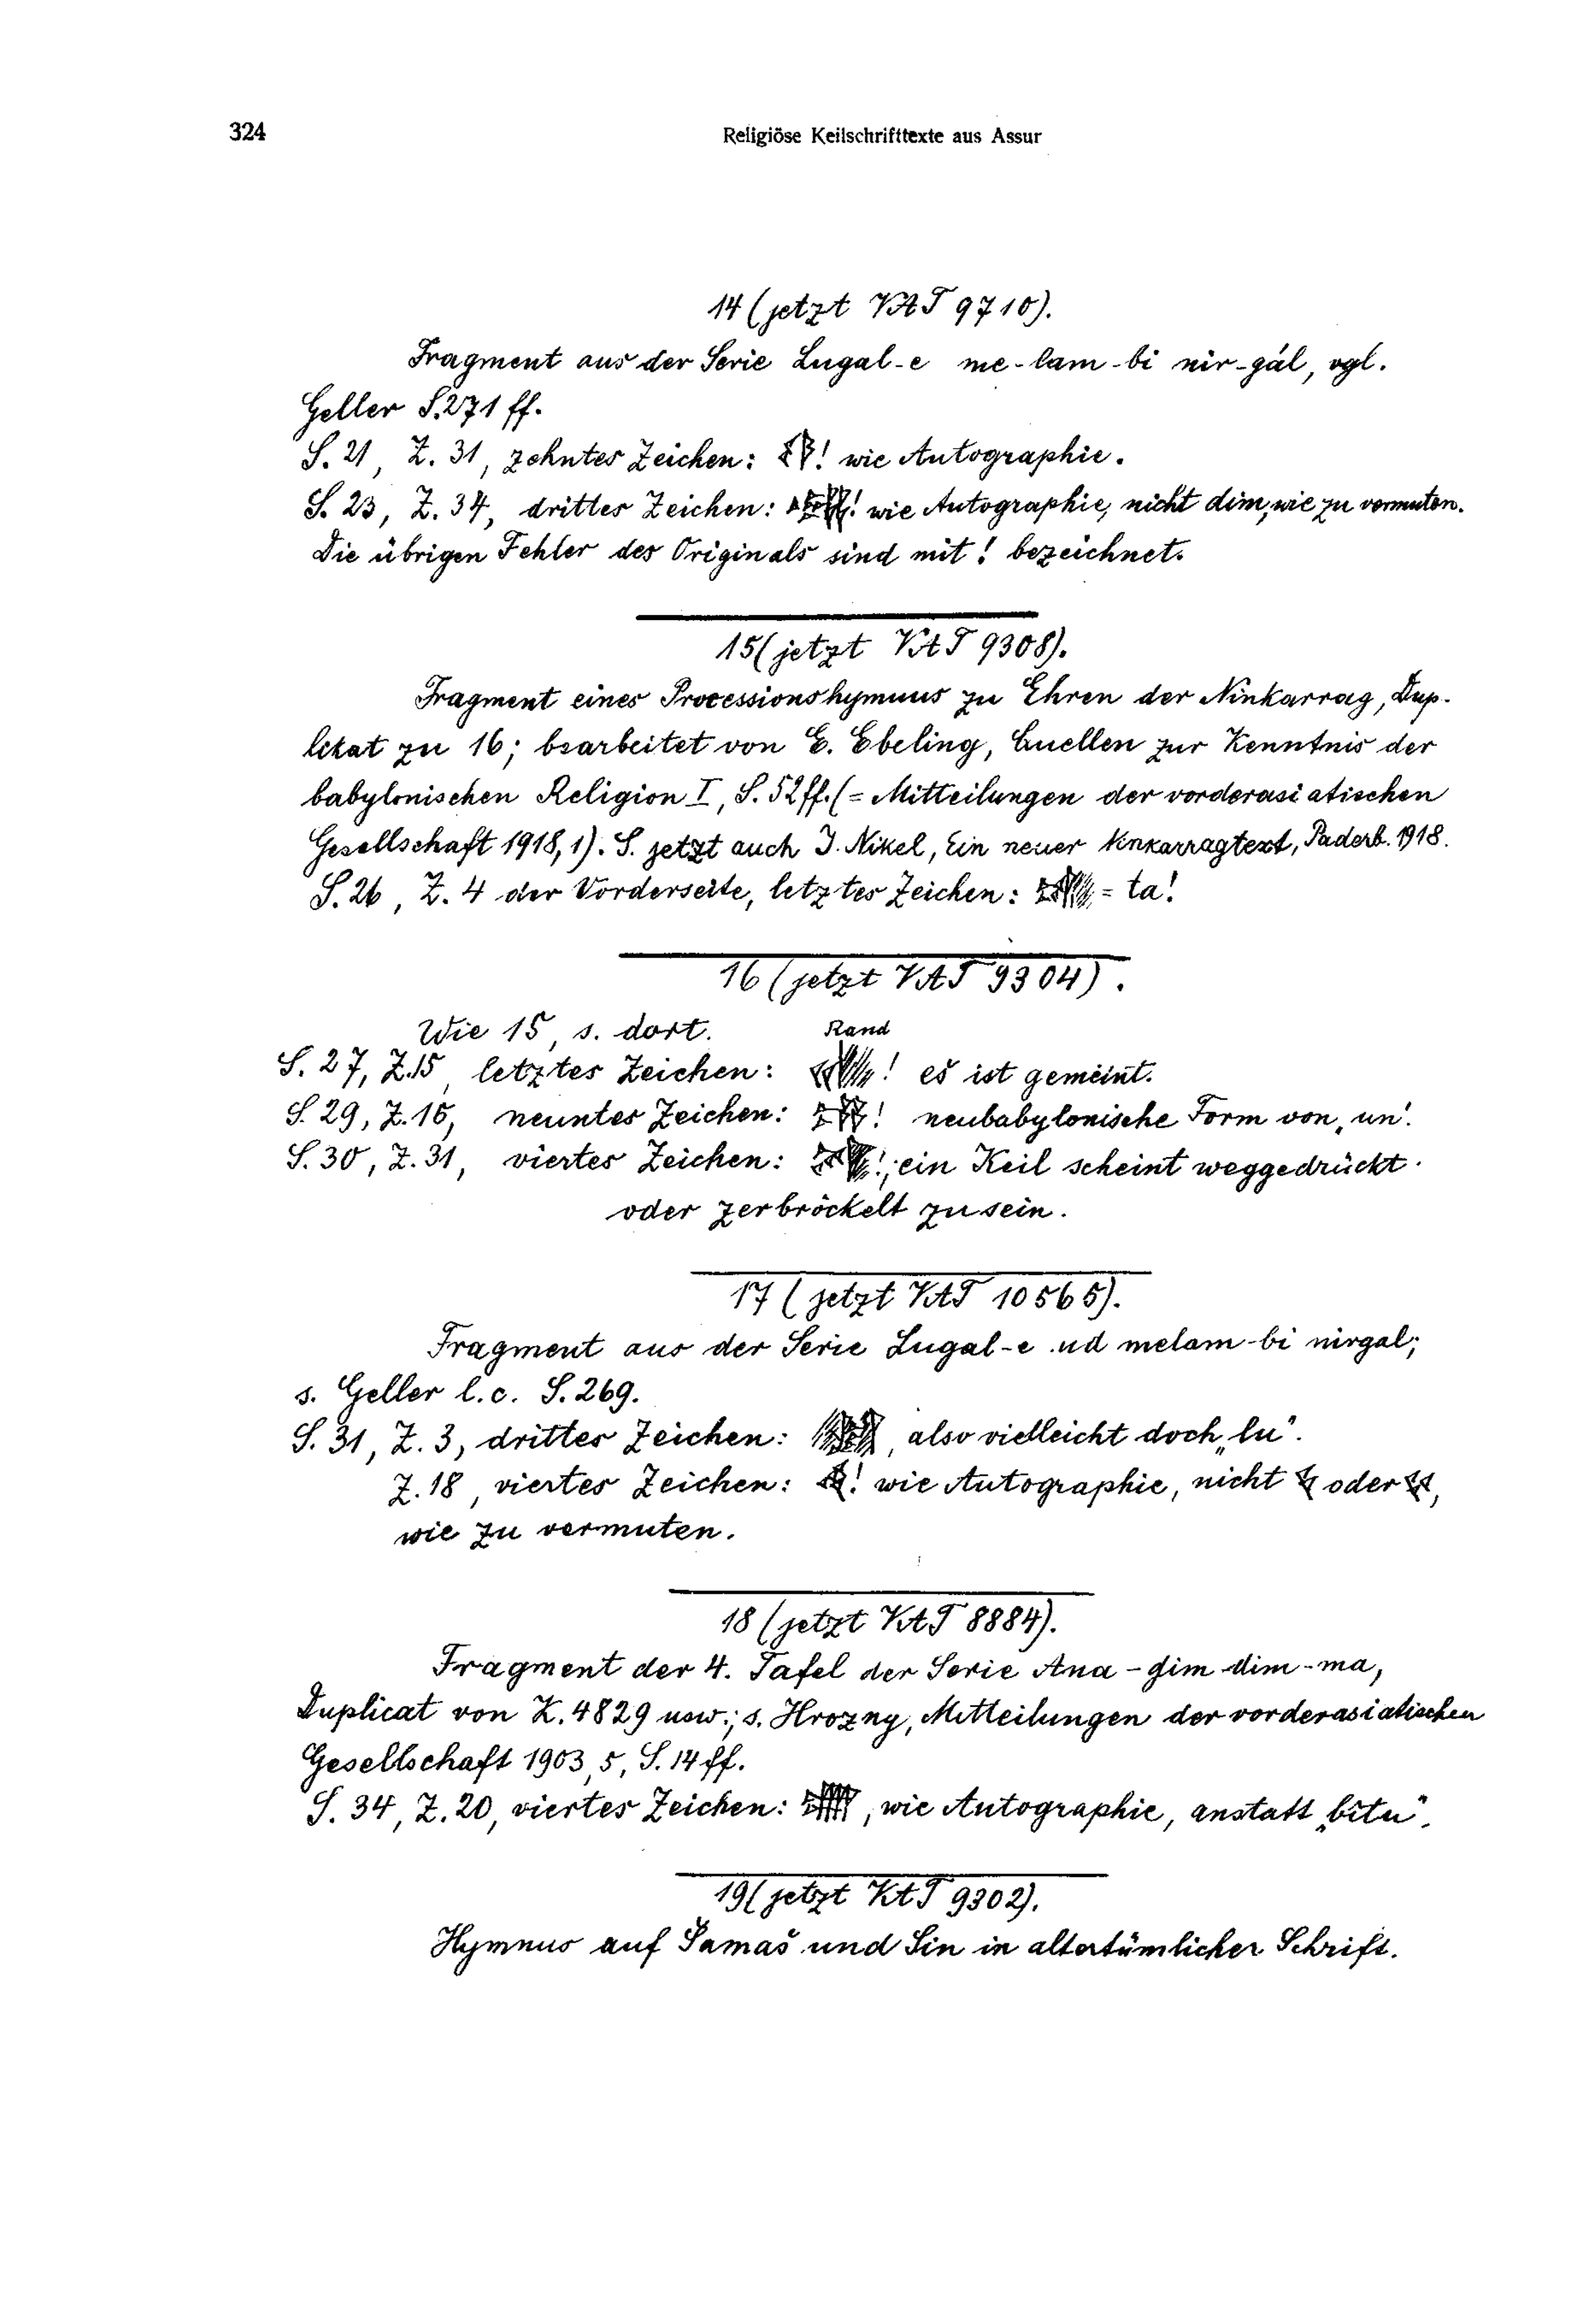 324
Religiöse Keilschrifttexte aus Assur
14 (jetzt VAT 9710).
Fragment aus der Serie Lugal-e me-lam-bi nir-gál, vgl.
Geller S. 271 ff.
S. 21, Z. 31, zehntes Zeichen: ! wie Autographie.
S. 23, Z. 34, drittes Zeichen: ! wie Autographie, nicht dim, wie zu vermuten.
Die übrigen Fehler des Originals sind mit ! bezeichnet.
15 (jetzt VAT 9308).
Fragment eines Processionshymnus zu Ehren der Ninkarrag, Dup-
likat zu 16; bearbeitet von E. Ebeling, Quellen zur Kenntnis der
babylonischen Religion I, S. 52 ff. (= Mitteilungen der vorderasiatischen
Gesellschaft 1918, 1). S. jetzt auch J. Nikel, Ein neuer Ninkarragtext, Paderb. 1918.
S. 26, Z. 4 der Vorderseite, letztes Zeichen: = ta!
16 (jetzt VAT 9304).
Wie 15, s. dort. Rand
S. 27, Z. 15, letztes Zeichen: ! eš ist gemeint.
S. 29, Z. 16, neuntes Zeichen: ! neubabylonische Form von „un".
S. 30, Z. 31, viertes Zeichen: !; ein Keil scheint weggedrückt
oder zerbröckelt zu sein.
17 (jetzt VAT 10565).
Fragment aus der Serie Lugal-e ud melam-bi nirgal;
s. Geller l. c. S. 269.
S. 31, Z. 3, drittes Zeichen: , also vielleicht doch „lu".
Z. 18, viertes Zeichen: ! wie Autographie, nicht oder ,
wie zu vermuten.
18 (jetzt VAT 8884).
Fragment der 4. Tafel der Serie Ana-gim dim-ma,
Duplicat von K. 4829 usw.; s. Hrozny, Mitteilungen der vorderasiatischen
Gesellschaft 1903, 5, S. 14 ff.
S. 34, Z. 20, viertes Zeichen: , wie Autographie, anstatt „bîtu".
19 (jetzt VAT 9302).
Hymnus auf Šamaš und Sin in altertümlicher Schrift.